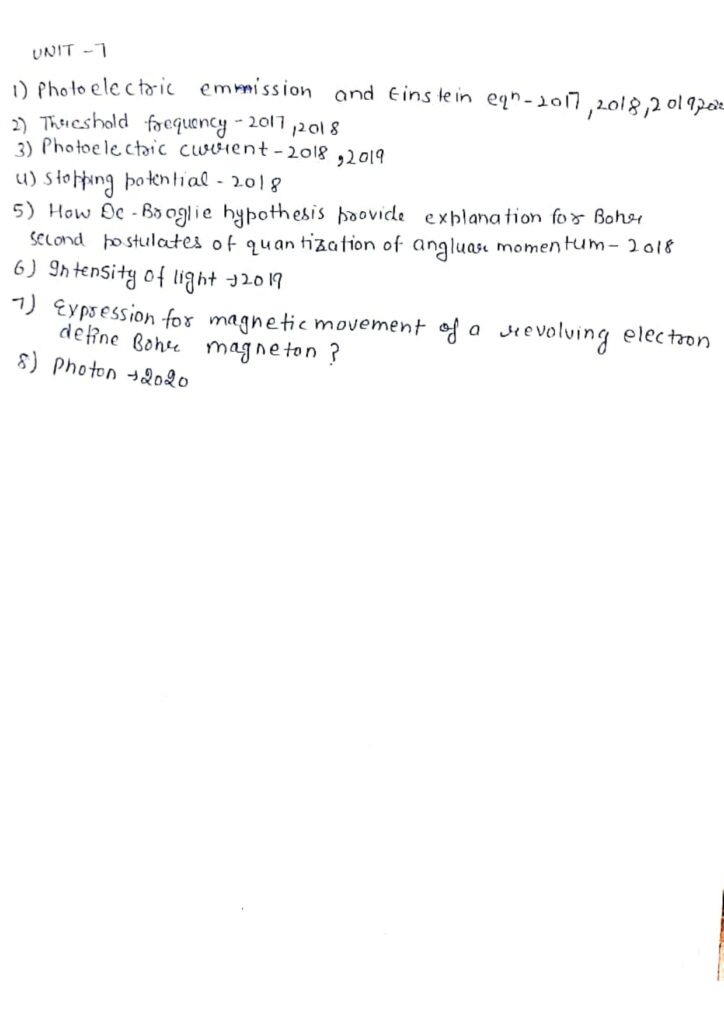 UNIT - 7
1) Photoelectric emmission and Einstein eqn - 2017, 2018, 2019, 2020
2) Threshold frequency - 2017, 2018
3) Photoelectric current - 2018, 2019
4) Stopping potential - 2018
5) How De-Broglie hypothesis provide explanation for Boher
second postulates of quantization of angluar momentum - 2018
6) Intensity of light → 2019
7) Expression for magnetic movement of a revolving electron
define Boher magneton ?
8) Photon → 2020